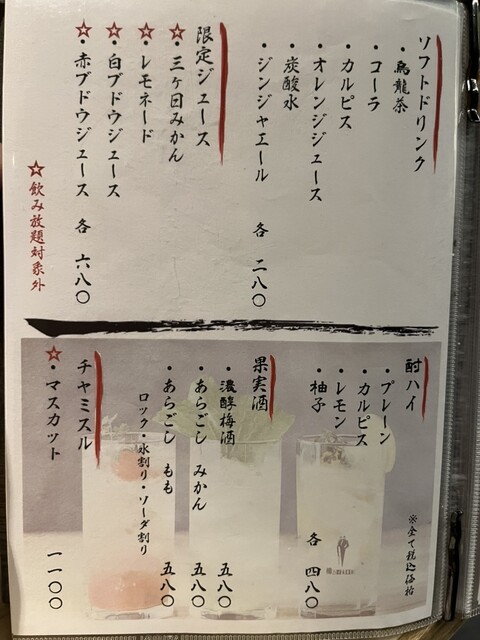 ソフトドリンク
・烏龍茶
・コーラ
・カルピス
・オレンジジュース
・炭酸水
・ジンジャエール 各 二八〇
限定ジュース
☆・三ヶ日みかん
☆・レモネード
☆・白ブドウジュース
☆・赤ブドウジュース 各 六八〇
☆飲み放題対象外
※全て税込価格
酎ハイ
・プレーン
・カルピス
・レモン
・柚子 各 四八〇
果実酒
・濃醇梅酒 五八〇
・あらごし みかん 五八〇
・あらごし もも 五八〇
ロック・水割り・ソーダ割り
チャミスル
☆・マスカット 一一〇〇